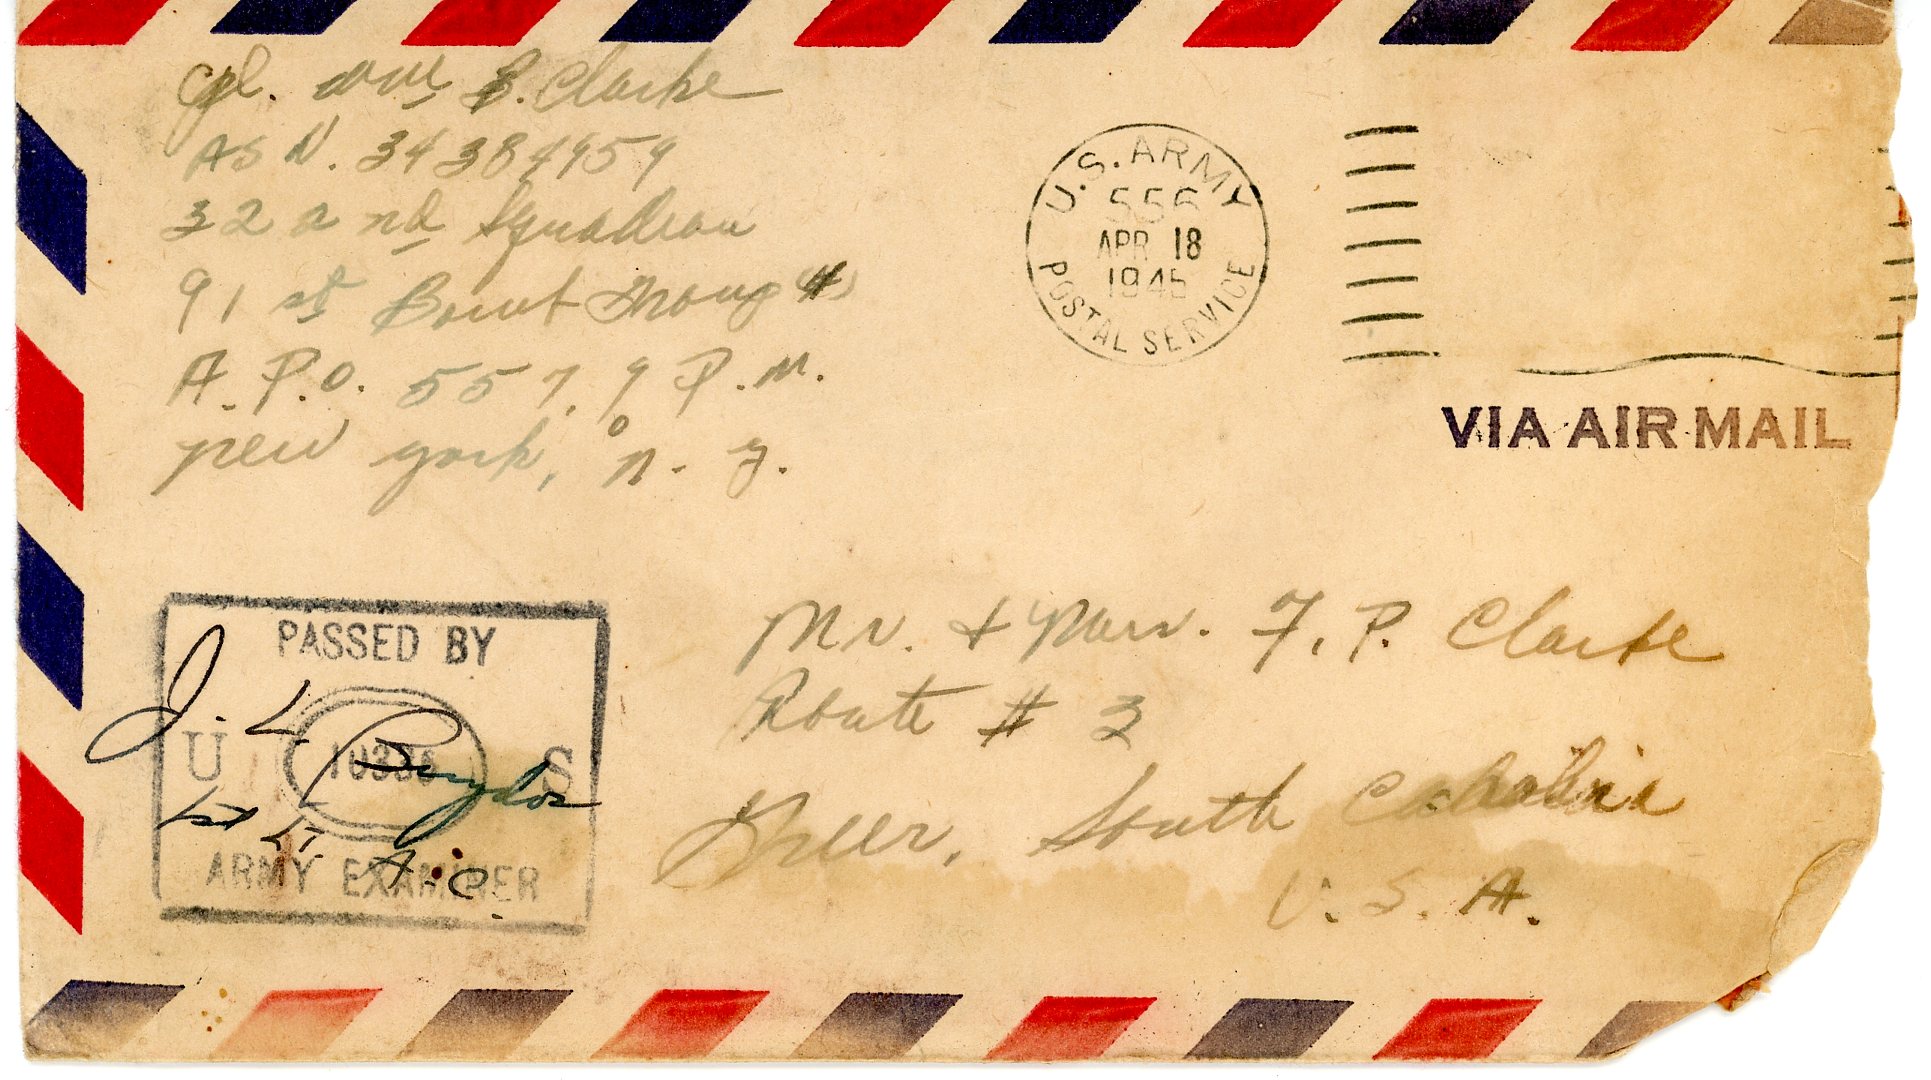 Cpl. Wm B. Clarke
ASN. 34384959
322nd Squadron
91st Bomb Group (H)
A.P.O. 557, % P.M.
New York, N.Y.
U.S. ARMY
556
APR 18
1945
POSTAL SERVICE
VIA AIR MAIL
PASSED BY
U S
ARMY EXAMINER
J. L.
1st Lt. A.C.
Mr. & Mrs. F. P. Clarke
Route # 3
Greer, South Carolina
U.S.A.